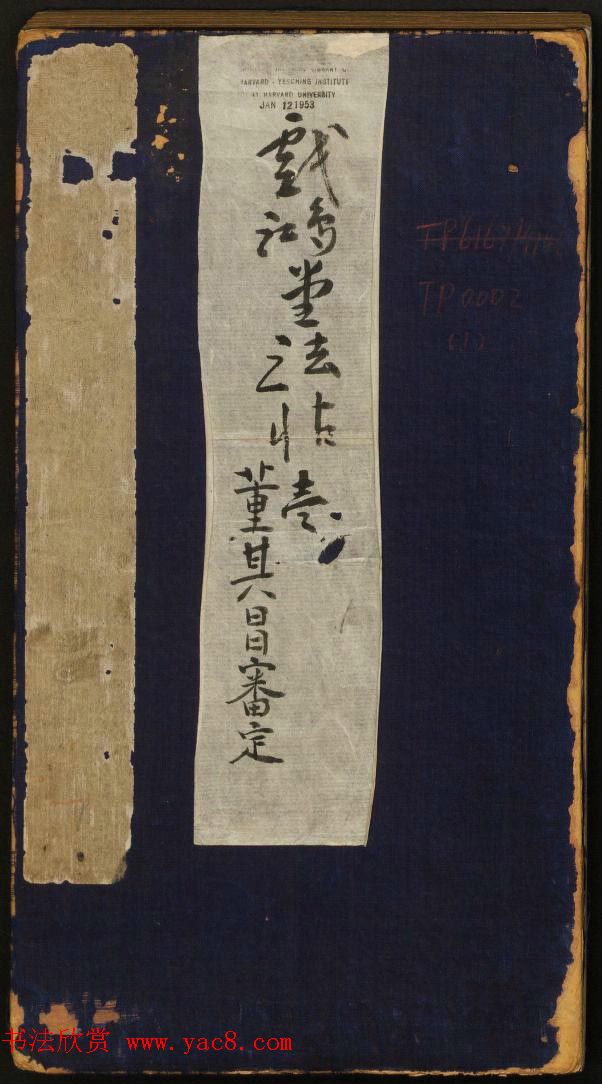 HARVARD-YENCHING INSTITUTE
AT HARVARD UNIVERSITY
JAN 12 1953
戲鴻堂法帖壹
董其昌審定
TP 0002
(1)
书法欣赏 www.yac8.com